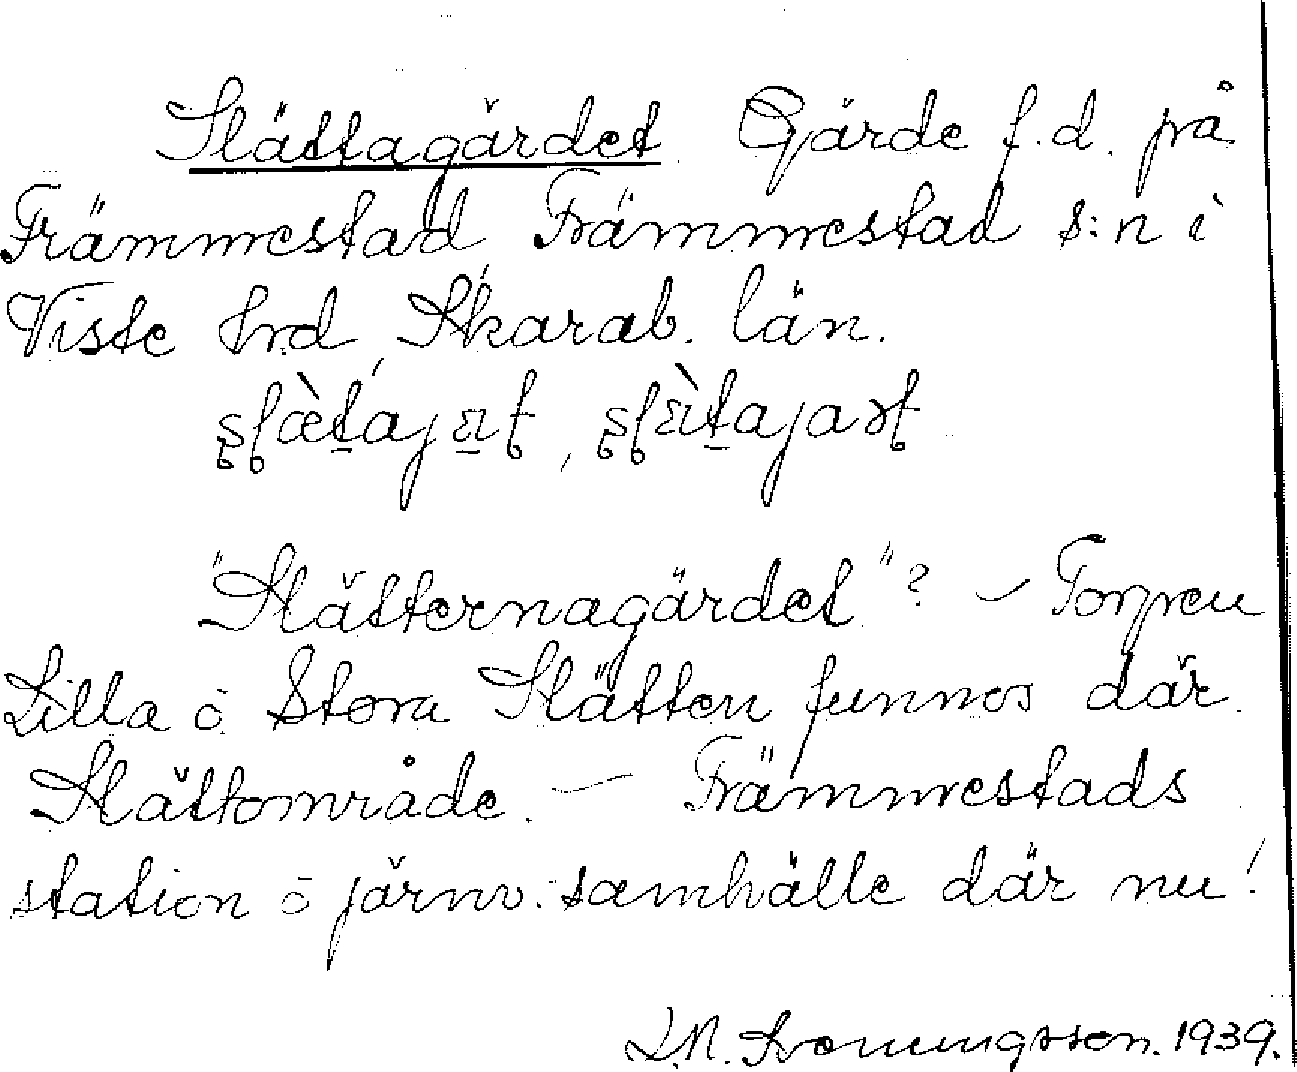 Slättagärdet. Gärde f.d. på
Främmestad, Främmestad s:n i
Viste hrd, Skarab. län.
"Slätternagärdet"? – Torpen
Lilla o Stora Slätten funnos där.
Slättområde. – Främmestads
station o järnv. samhälle där nu!
1939.